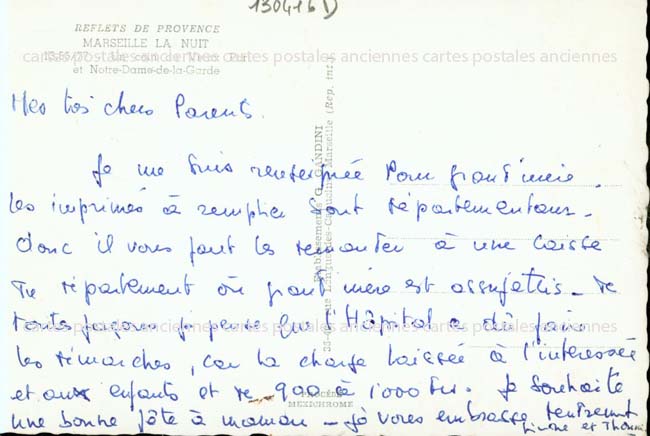 130416 D
REFLETS DE PROVENCE
MARSEILLE LA NUIT
Un coin du Vieux Port
et Notre-Dame-de-la-Garde
cartes postales anciennes cartes postales anciennes cartes postales anciennes
Mes très chers Parents.
Je me suis renseignée pour grand'mère.
Les imprimés à remplir sont départementaux.
donc il vous faut les demander à une caisse
du département où grand'mère est assujettis - de
toutes façons je pense que l'Hôpital a dû faire
cartes postales anciennes cartes postales anciennes cartes postales anciennes
les démarches, car la charge laissée à l'intéressée
et aux enfants et de 900 à 1000 Frs. Je souhaite
une bonne fête à maman - Je vous embrasse tendrement
et
Etablissements G. GANDINI
Marseille (Rep. int.)
MEXICHROME